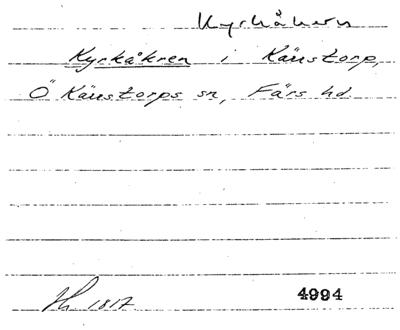 Kyrkåkern
Kyrkåkren i Käustorp,
Ö Käustorps sn, Färs hd.
1817 4994